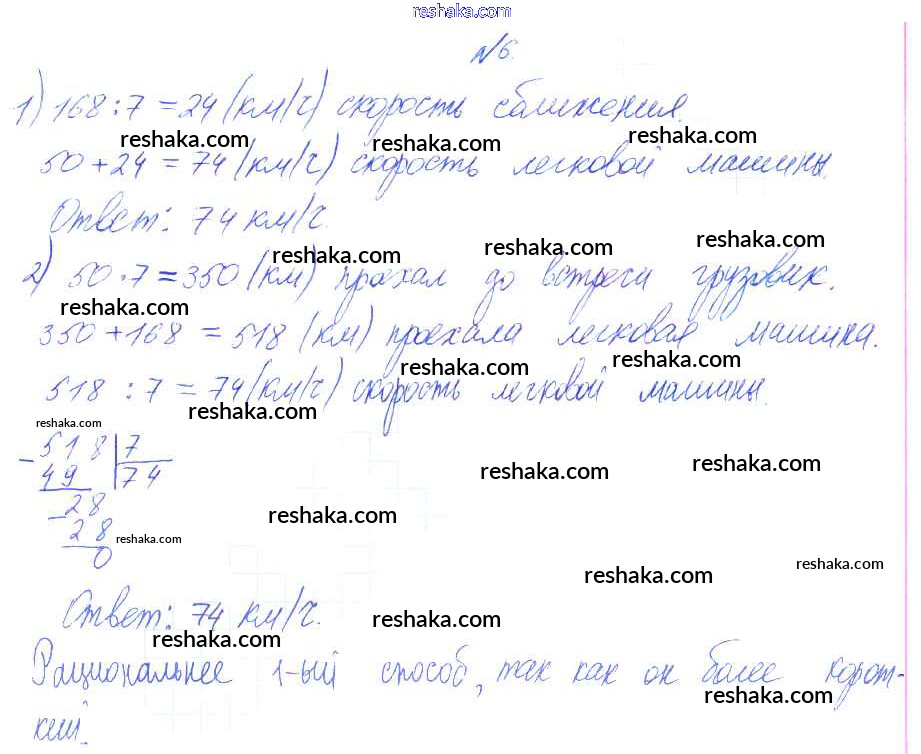 reshaka.com
№6.
1) 168:7 = 24 (км/ч) скорость сближения.
reshaka.com reshaka.com reshaka.com
50 + 24 = 74 (км/ч) скорость легковой машины.
Ответ: 74 км/ч.
reshaka.com reshaka.com reshaka.com
2) 50·7 = 350 (км) проехал до встречи грузовик.
reshaka.com
350 + 168 = 518 (км) проехала легковая машина.
reshaka.com reshaka.com
518 : 7 = 74 (км/ч) скорость легковой машины.
reshaka.com
reshaka.com
- 518 | 7
49 | 74
reshaka.com reshaka.com
- 28
reshaka.com
28
reshaka.com
0
reshaka.com
reshaka.com
Ответ: 74 км/ч.
reshaka.com
reshaka.com
Рациональнее 1-ый способ, так как он более корот-
reshaka.com
кий.